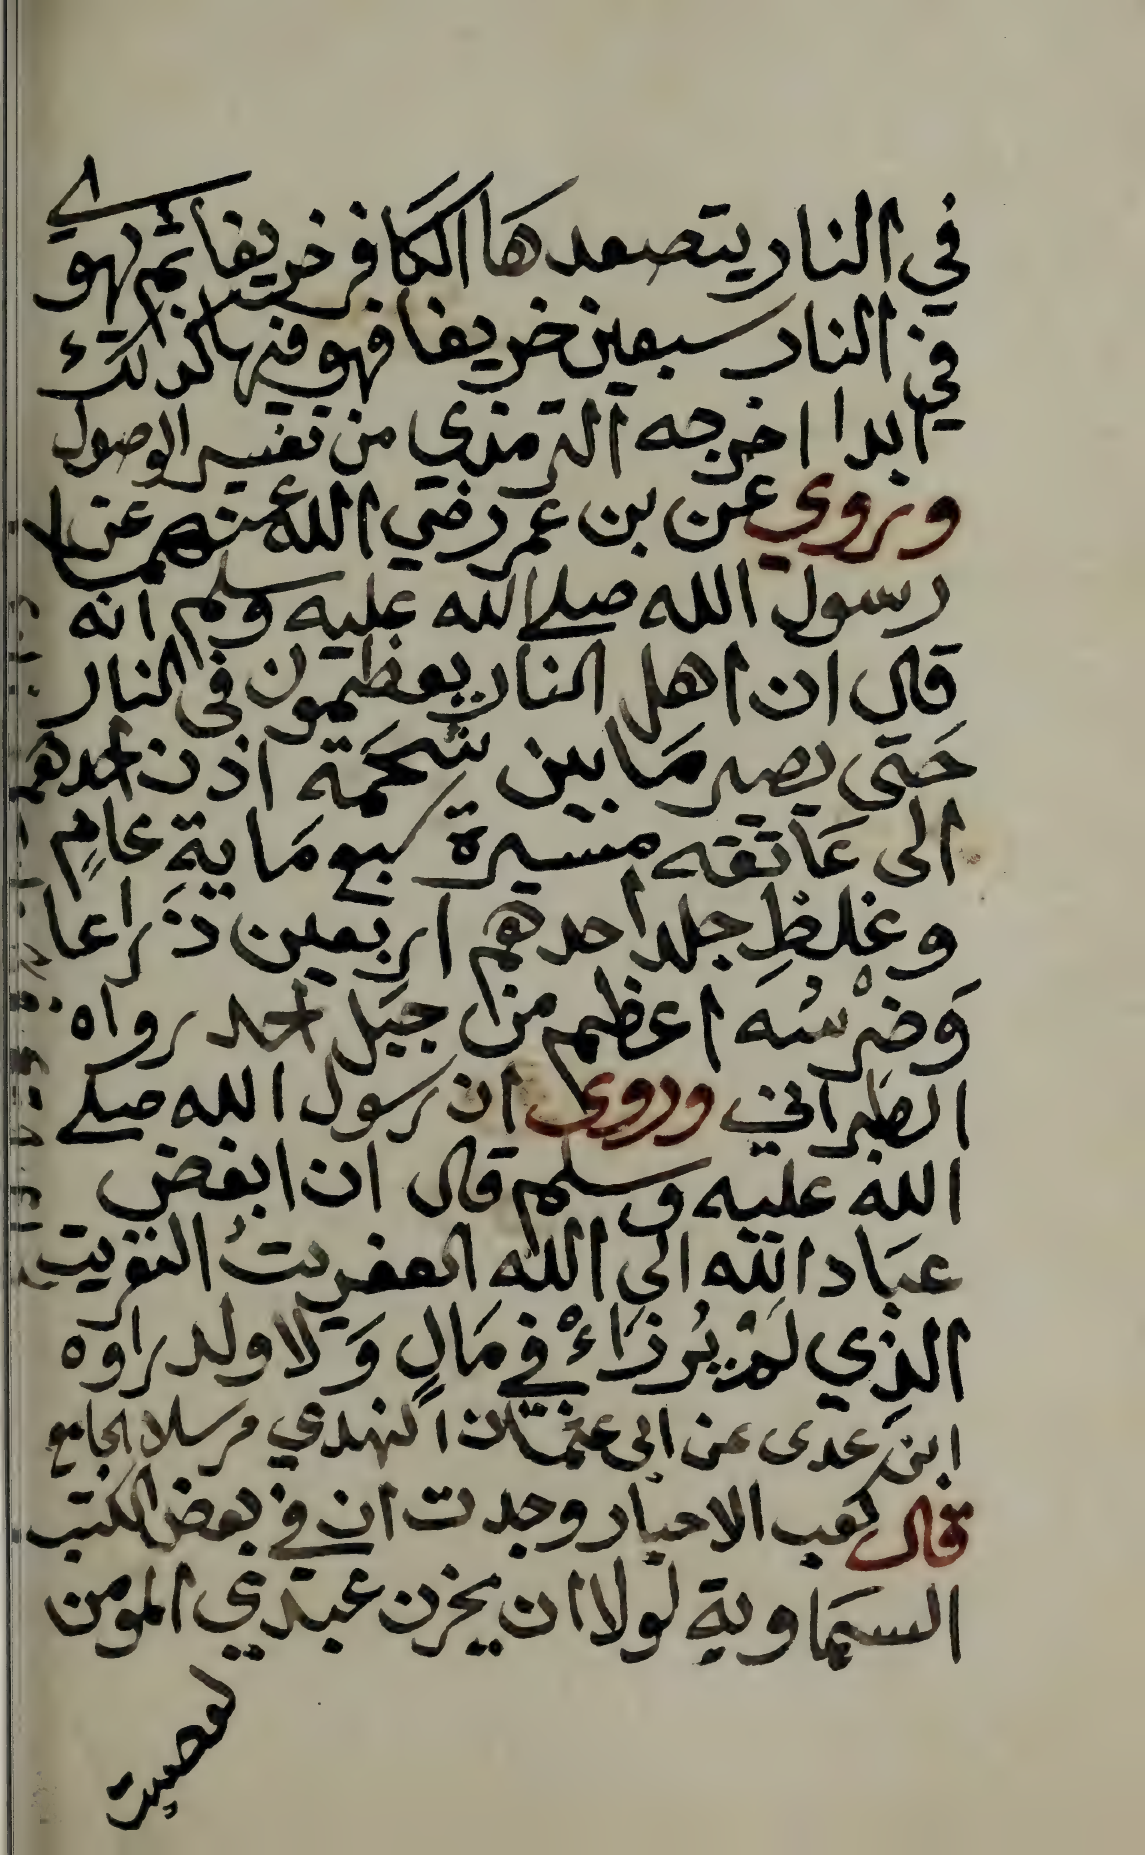 في النار يتصعدها الكافر خريفا ثم يهوي
في النار سبعين خريفا فهو فيها كذلك
ابدا اخرجه الترمذي من تفسير الوصول
وروي عن بن عمر رضي الله عنهما عن
رسول الله صلى الله عليه وسلم انه
قال ان اهل النار يعظمون في النار
حَتى يصير مَا بين شحَمة اذن احدهم
الى عَاتقه مسيرة سبع مَاية عامٍ
وغلظِ جلد احدهم اربعين ذراعا
وَضرْسُه اعظم من جبَل احد رواه
الطبراني وروى ان رسول الله صلى
الله عليه وسلم قال ان ابغض
عبَاد الله الى الله العفريتُ النفريت
الذي لمْ يُرزَاءْ في مَالٍ وَلا ولد راوه
ابن عدى عن ابى عثمان النهدي مرسلا الجامع
قال كعب الاحبار وجدت ان في بعض الكتب
السمَاوية لولا ان يحزن عبدي المومن
لعصبت